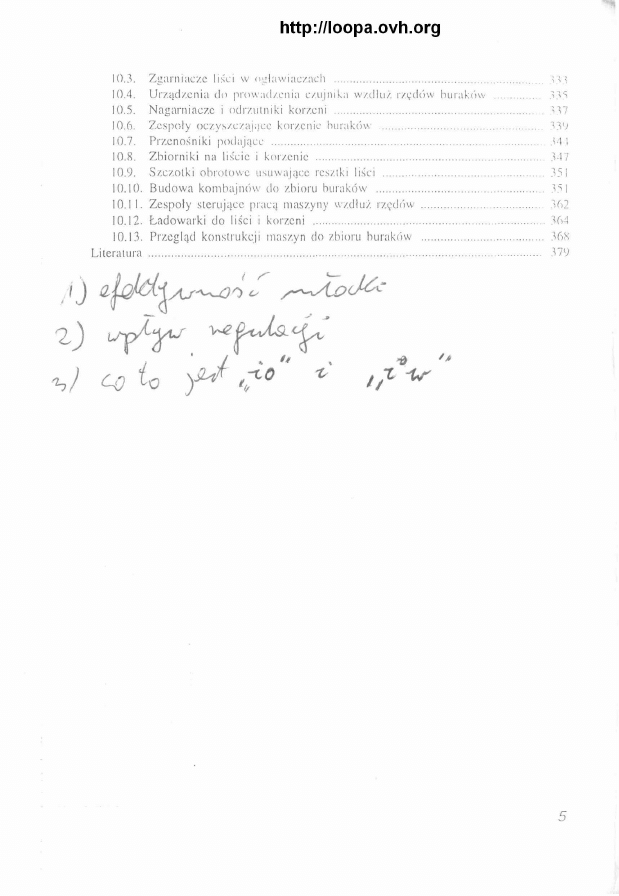 http://loopa.ovh.org
10.3. Zgarniacze liści w ogławiaczach 333
10.4. Urządzenia do prowadzenia czujnika wzdłuż rzędów buraków 335
10.5. Nagarniacze i odrzutniki korzeni 337
10.6. Zespoły oczyszczające korzenie buraków 339
10.7. Przenośniki podające 343
10.8. Zbiorniki na liście i korzenie 347
10.9. Szczotki obrotowe usuwające resztki liści 351
10.10. Budowa kombajnów do zbioru buraków 351
10.11. Zespoły sterujące pracą maszyny wzdłuż rzędów 362
10.12. Ładowarki do liści i korzeni 364
10.13. Przegląd konstrukcji maszyn do zbioru buraków 368
Literatura 379
1) efektywność młócki
2) wpływ regulacji
3) co to jest „io" i „iw"
5